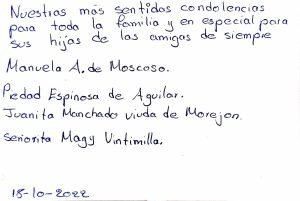 Nuestras más sentidas condolencias
para toda la familia y en especial para
sus hijas de las amigas de siempre
Manuela A. de Moscoso.
Piedad Espinosa de Aguilar.
Juanita Manchado viuda de Morejon.
Señorita Magy Vintimilla.
18-10-2022